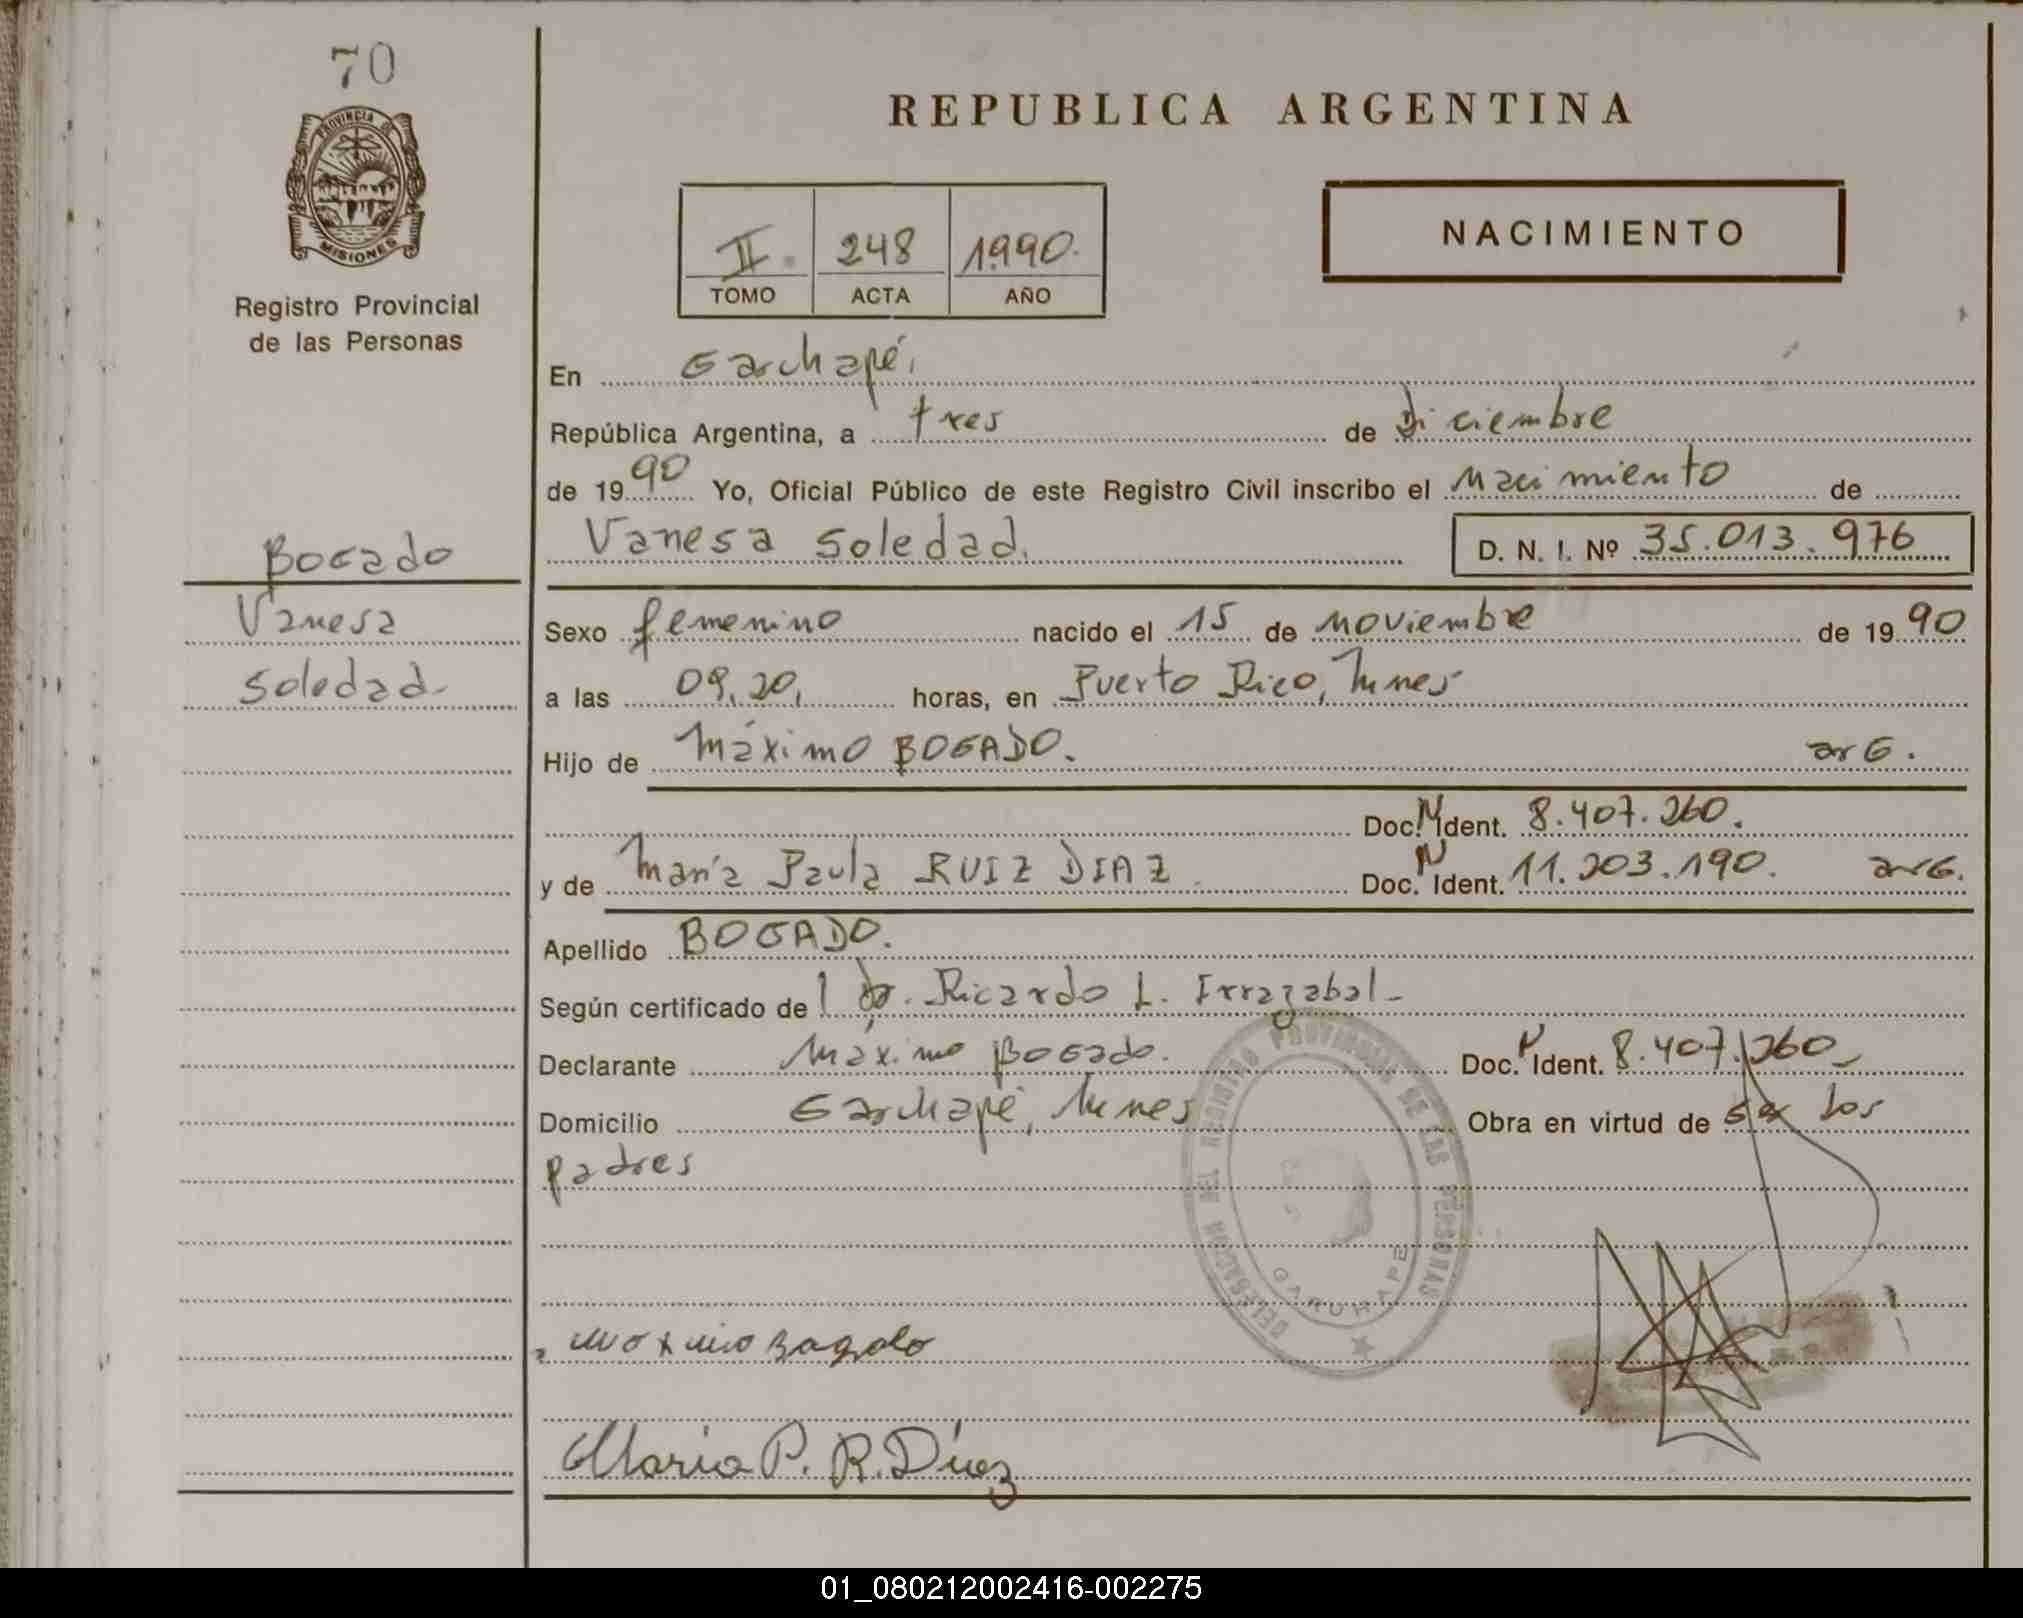 70
PROVINCIA DE
MISIONES
Registro Provincial
de las Personas
Bogado
Vanesa
Soledad
REPUBLICA ARGENTINA
II. 248 1990.
TOMO ACTA AÑO
NACIMIENTO
En Garuhapé,
República Argentina, a tres de Diciembre
de 19 90 Yo, Oficial Público de este Registro Civil inscribo el Nacimiento de
Vanesa Soledad. D. N. I. Nº 35.013.976
Sexo femenino nacido el 15 de noviembre de 19 90
a las 09,20, horas, en Puerto Rico, Mnes
Hijo de Máximo BOGADO. arG.
Doc. N Ident. 8.407.260.
y de María Paula RUIZ DIAZ Doc. N Ident. 11.203.190. arG.
Apellido BOGADO.
Según certificado de l dr. Ricardo L. Irrazabal-
Declarante Máximo Bogado. Doc. N Ident. 8.407.260
Domicilio Garuhapé, Mnes Obra en virtud de ser los
padres
DELEGACION DEL REGISTRO PROVINCIAL DE LAS PERSONAS
GARUHAPE
Maximo Bogado
Maria P. R. Díaz
01_080212002416-002275